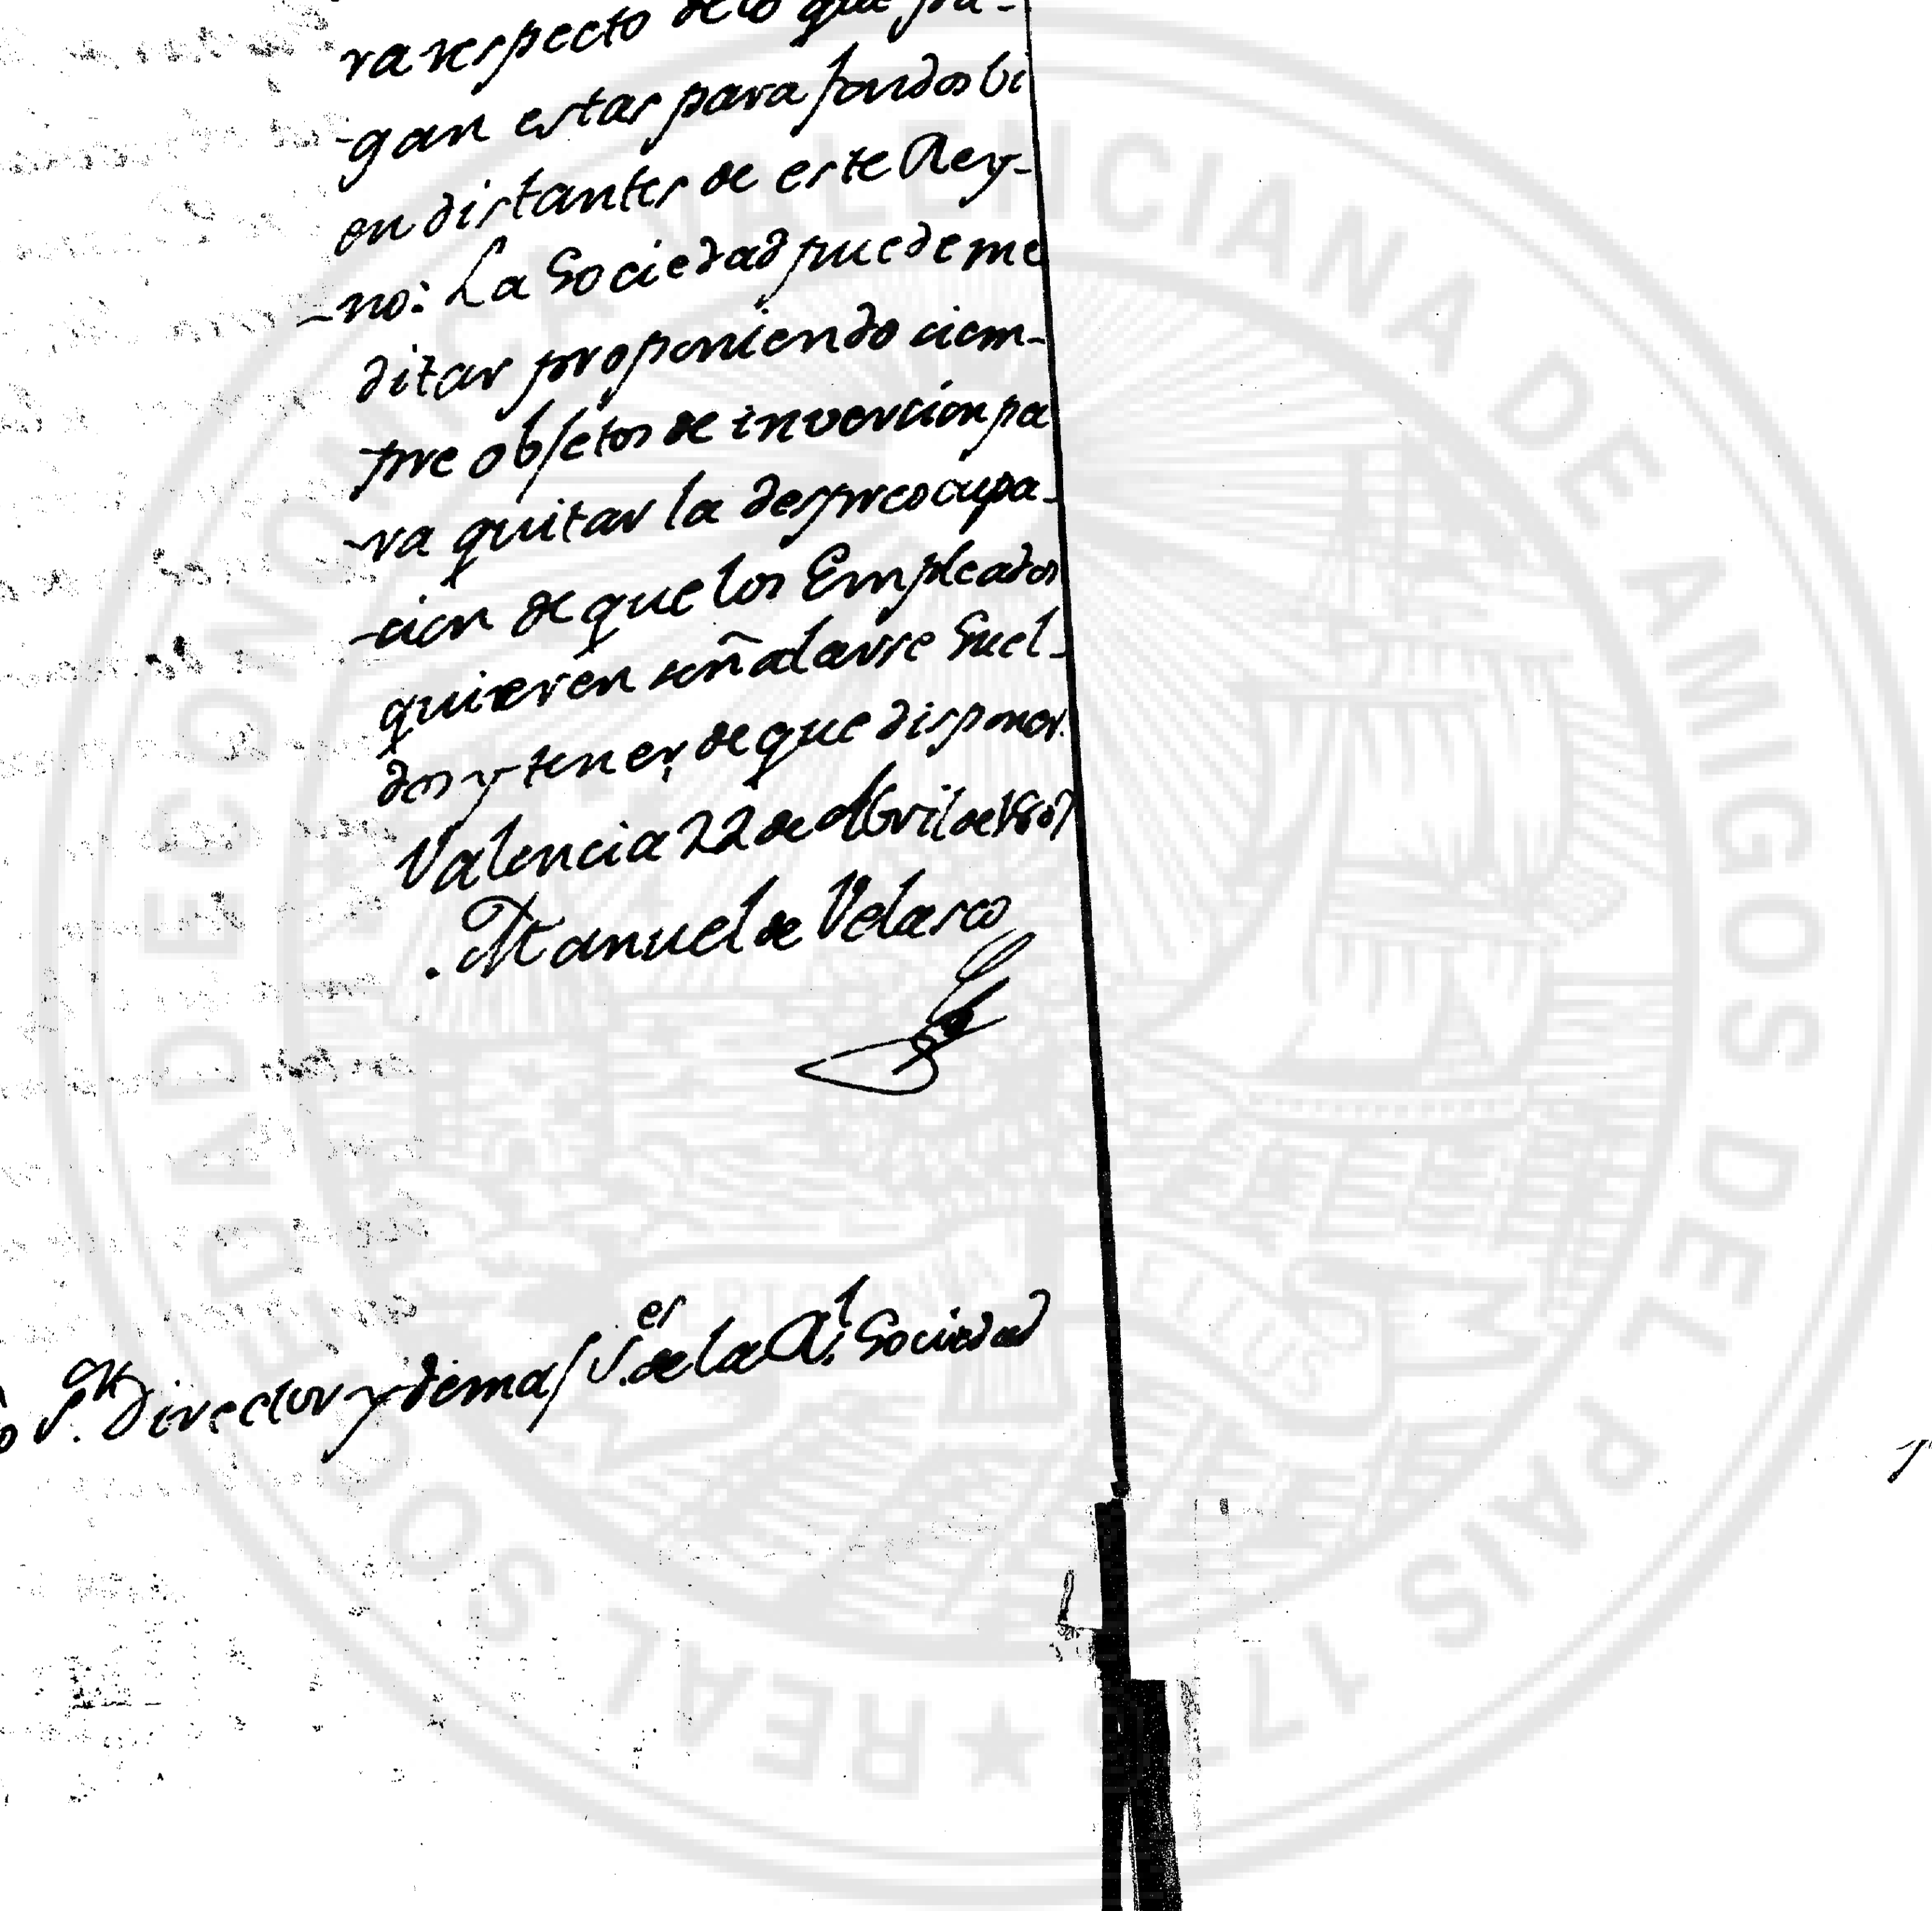 ra respecto de lo que pa-
-gan estar para fondos bi
en distantes de este Rey-
-no: La Sociedad puede me
ditar proponiendo ciem-
pre objetos de invercion pa
-ra quitar la despreocupa-
-cion de que los Empleados
quieren señalarse Suel-
dos y tener de que disponer.
Valencia 22 de Abril de 1807
Manuel de Velasco
S.or Director y demas S.es de la R.l Sociedad
REAL SOCIEDAD ECONOMICA VALENCIANA DE AMIGOS DEL PAIS 1776